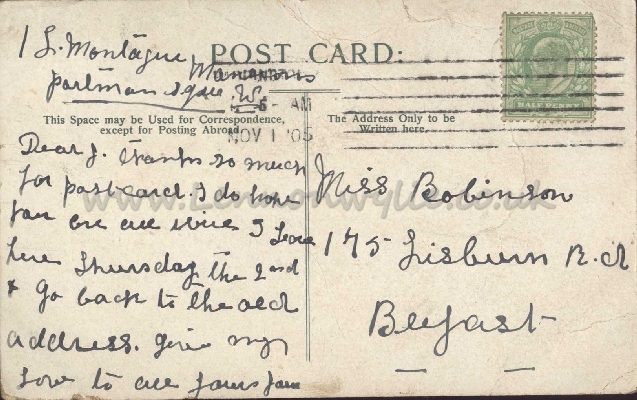 1 L. Montague Mansions
Portman Sque W.
POST CARD:
5 - AM
NOV 1 05
HALFPENNY
This Space may be Used for Correspondence,
except for Posting Abroad.
The Address Only to be
Written here.
Dear J. thanks so much
for postcard. I do hope
you are all nice I leave
here Thursday the 2nd
& go back to the old
address. give my
love to all yours
Miss Robinson
175 Lisburn R.d
Belfast